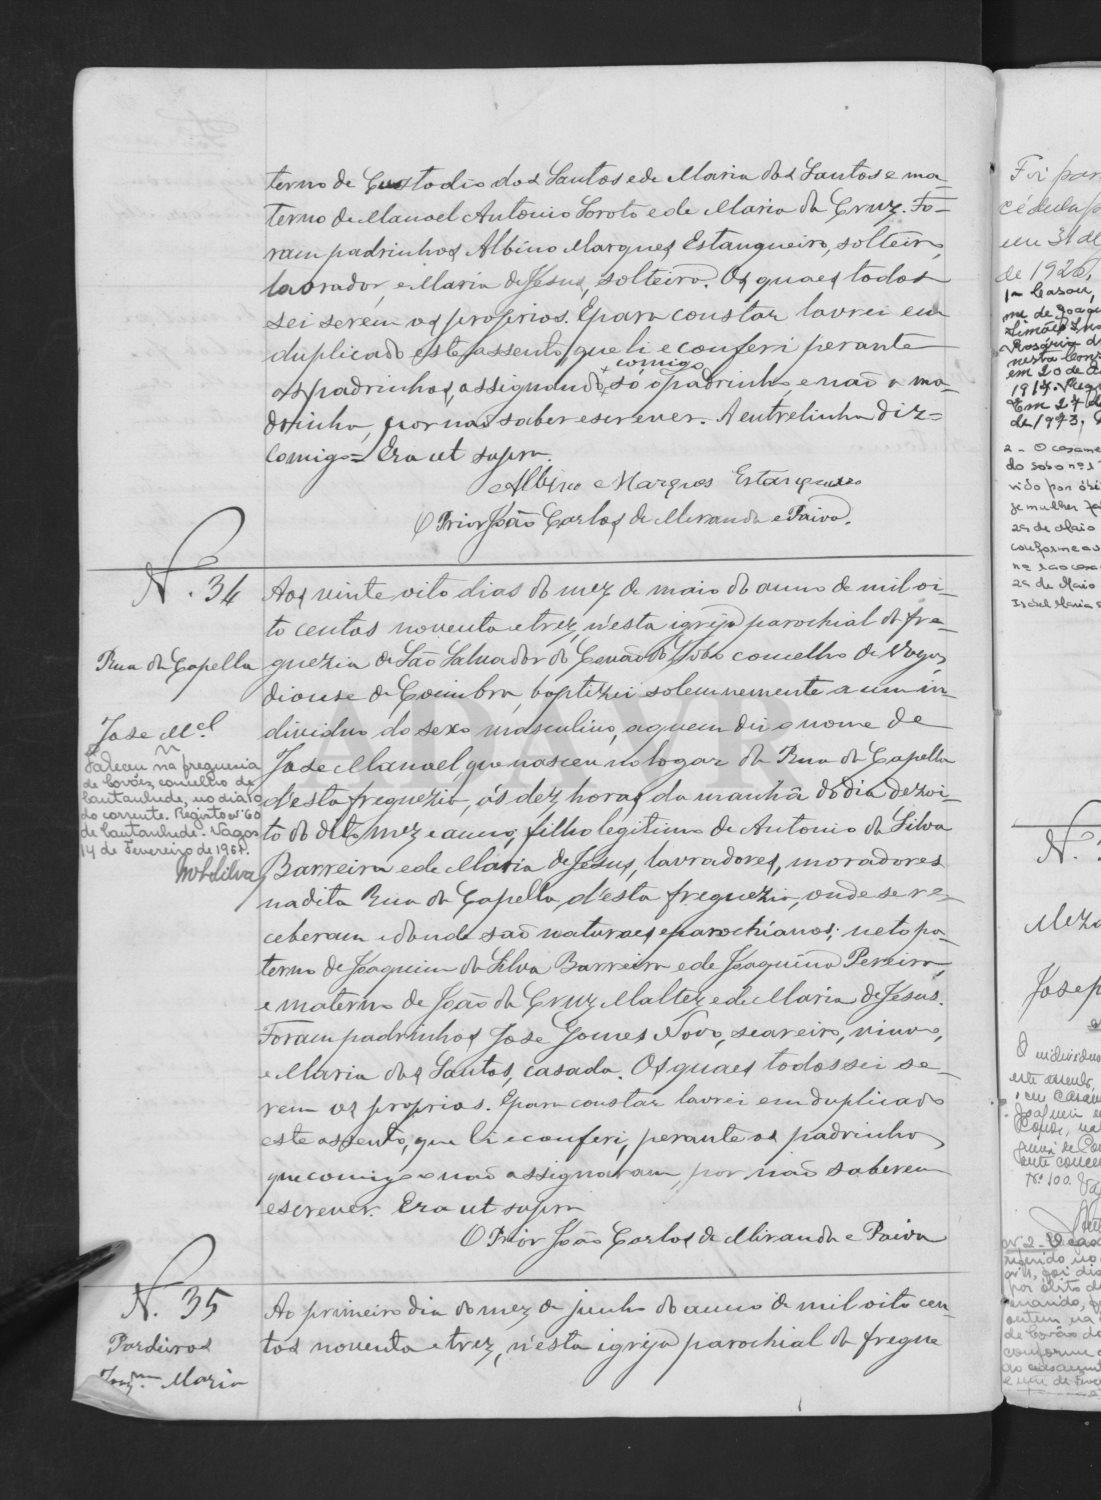 terno de Custodio dos Santos e de Maria dos Santos e ma-
terno de Manoel Antonio Loroto e de Maria da Cruz. Fo-
ram padrinhos Albino Marques Estanqueiro, solteiro,
lavrador, e Maria de Jesus, solteira. Os quaes todos
sei serem os proprios. E para constar lavrei em
duplicado este assento, que li e conferi perante
comigo
os padrinhos, assignando só o padrinho e não a ma-
drinha, por não saber escrever. A entrelinha diz=
Comigo= Era ut supra.
Albino Marques Estanqueiro
O Prior João Carlos de Miranda e Paiva.
N. 34
Rua da Capella
Jose Mel
Faleceu na freguesia
de Covões, concelho de
Cantanhede, no dia 10
do corrente. Registo nº 60
de Cantanhede. Vagos
14 de Fevereiro de 1961.
Aos vinte oito dias do mez de maio do anno de mil oi-
to centos noventa e trez, n'esta igreja parochial da fre-
guezia de São Salvador do Covão do Lobo concelho de Vagos,
diocese de Coimbra, baptizei solemnemente a um in-
dividuo do sexo masculino, a quem dei o nome de
Jose Manoel, que nasceu no logar da Rua da Capella
d'esta freguezia, ás dez horas da manhã do dia dezoi-
to do dito mez e anno, filho legitimo de Antonio da Silva
Barreira e de Maria de Jesus, lavradores, moradores
na dita Rua da Capella, d'esta freguezia, onde se re-
ceberam e donde são naturaes e parochianos; neto pa-
terno de Joaquim da Silva Barreira e de Joaquina Pereira,
e materno de João da Cruz Maltez e de Maria de Jesus.
Foram padrinhos Jose Gomes Novo, seareiro, viuvo,
e Maria dos Santos, casada. Os quaes todos sei se-
rem os proprios. E para constar lavrei em duplicado
este assento, que li e conferi, perante os padrinhos
que comigo não assignaram, por não saberem
escrever. Era ut supra
O Prior João Carlos de Miranda e Paiva
N. 35
Pardeiros
Maria
Ao primeiro dia do mez de junho do anno de mil oito cen-
tos noventa e trez, n'esta igreja parochial da fregue
ADAVR
Foi pas
cédula p
em 31 de
de 1926,
1- Casou,
me de Joaqu
nesta Cons
em 20 de
Em 27 de
de 1973.
2 - O casame
do sob o nº 1
vido por óbi
29 de Maio
conforme
29 de Maio
N.
Mez
Josep
O individuo
este assento,
Joaquim
Nº 100.
nº 2 -
referido no
por óbito d
ontem na
de Covão do
conforme
ao casament